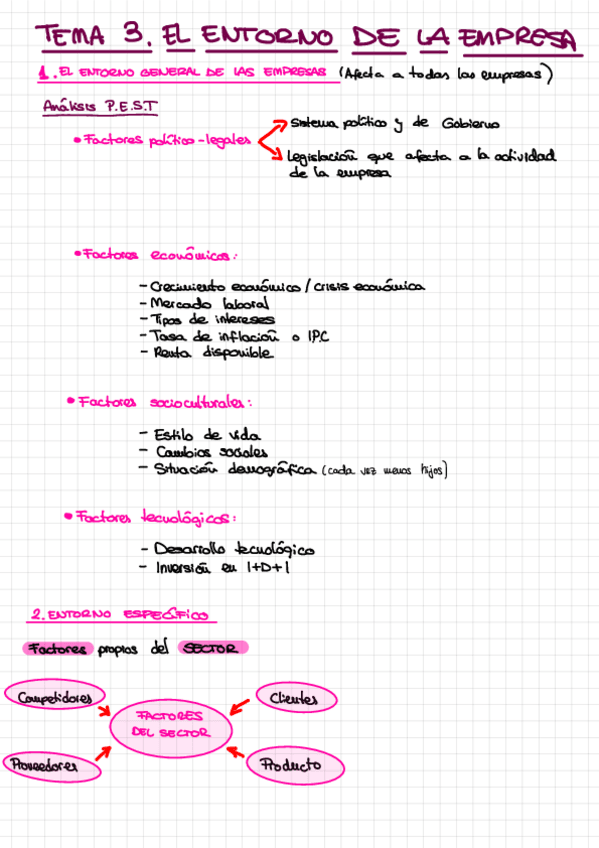 TEMA 3. EL ENTORNO DE LA EMPRESA
1. EL ENTORNO GENERAL DE LAS EMPRESAS (Afecta a todas las empresas)
Análisis P.E.S.T
• Factores político-legales
Sistema político y de Gobierno
Legislación que afecta a la actividad
de la empresa
• Factores económicos:
- Crecimiento económico / crisis económica
- Mercado laboral
- Tipos de intereses
- Tasa de inflación o IPC
- Renta disponible
• Factores socioculturales:
- Estilo de vida
- Cambios sociales
- Situación demográfica (cada vez menos hijos)
• Factores tecnológicos:
- Desarrollo tecnológico
- Inversión en I+D+I
2. ENTORNO ESPECÍFICO
Factores propios del SECTOR
Competidores
Clientes
FACTORES
DEL SECTOR
Proveedores
Producto